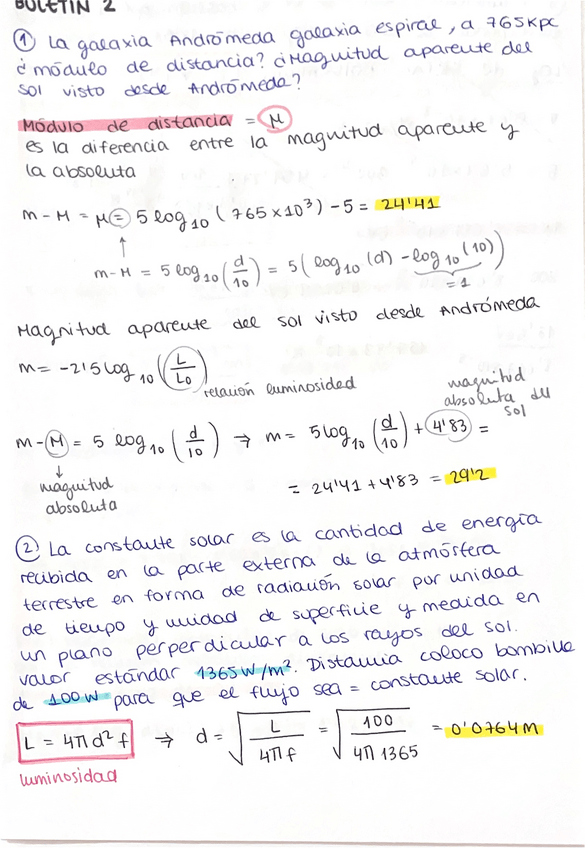 BOLETÍN 2
① La galaxia Andrómeda galaxia espiral, a 765Kpc
¿módulo de distancia? ¿Magnitud aparente del
sol visto desde Andrómeda?
Módulo de distancia = μ
es la diferencia entre la magnitud aparente y
la absoluta
m - M = μ = 5 log₁₀ (765 × 10³) - 5 = 24'41
↑
m - M = 5 log₁₀ (d/10) = 5 ( log₁₀ (d) - log₁₀ (10) )
= 1
Magnitud aparente del sol visto desde Andrómeda
m = -2'5 log₁₀ (L/L₀)
relación luminosidad
magnitud
absoluta del
sol
m - M = 5 log₁₀ (d/10) → m = 5 log₁₀ (d/10) + 4'83 =
↓
magnitud
absoluta
= 24'41 + 4'83 = 29'2
② La constante solar es la cantidad de energía
recibida en la parte externa de la atmósfera
terrestre en forma de radiación solar por unidad
de tiempo y unidad de superficie y medida en
un plano perperdicular a los rayos del sol.
valor estándar 1365 W/m². Distancia coloco bombilla
de 100 W para que el flujo sea = constante solar.
L = 4π d² f → d = √(L/4π f) = √(100/4π 1365) = 0'0764 m
luminosidad